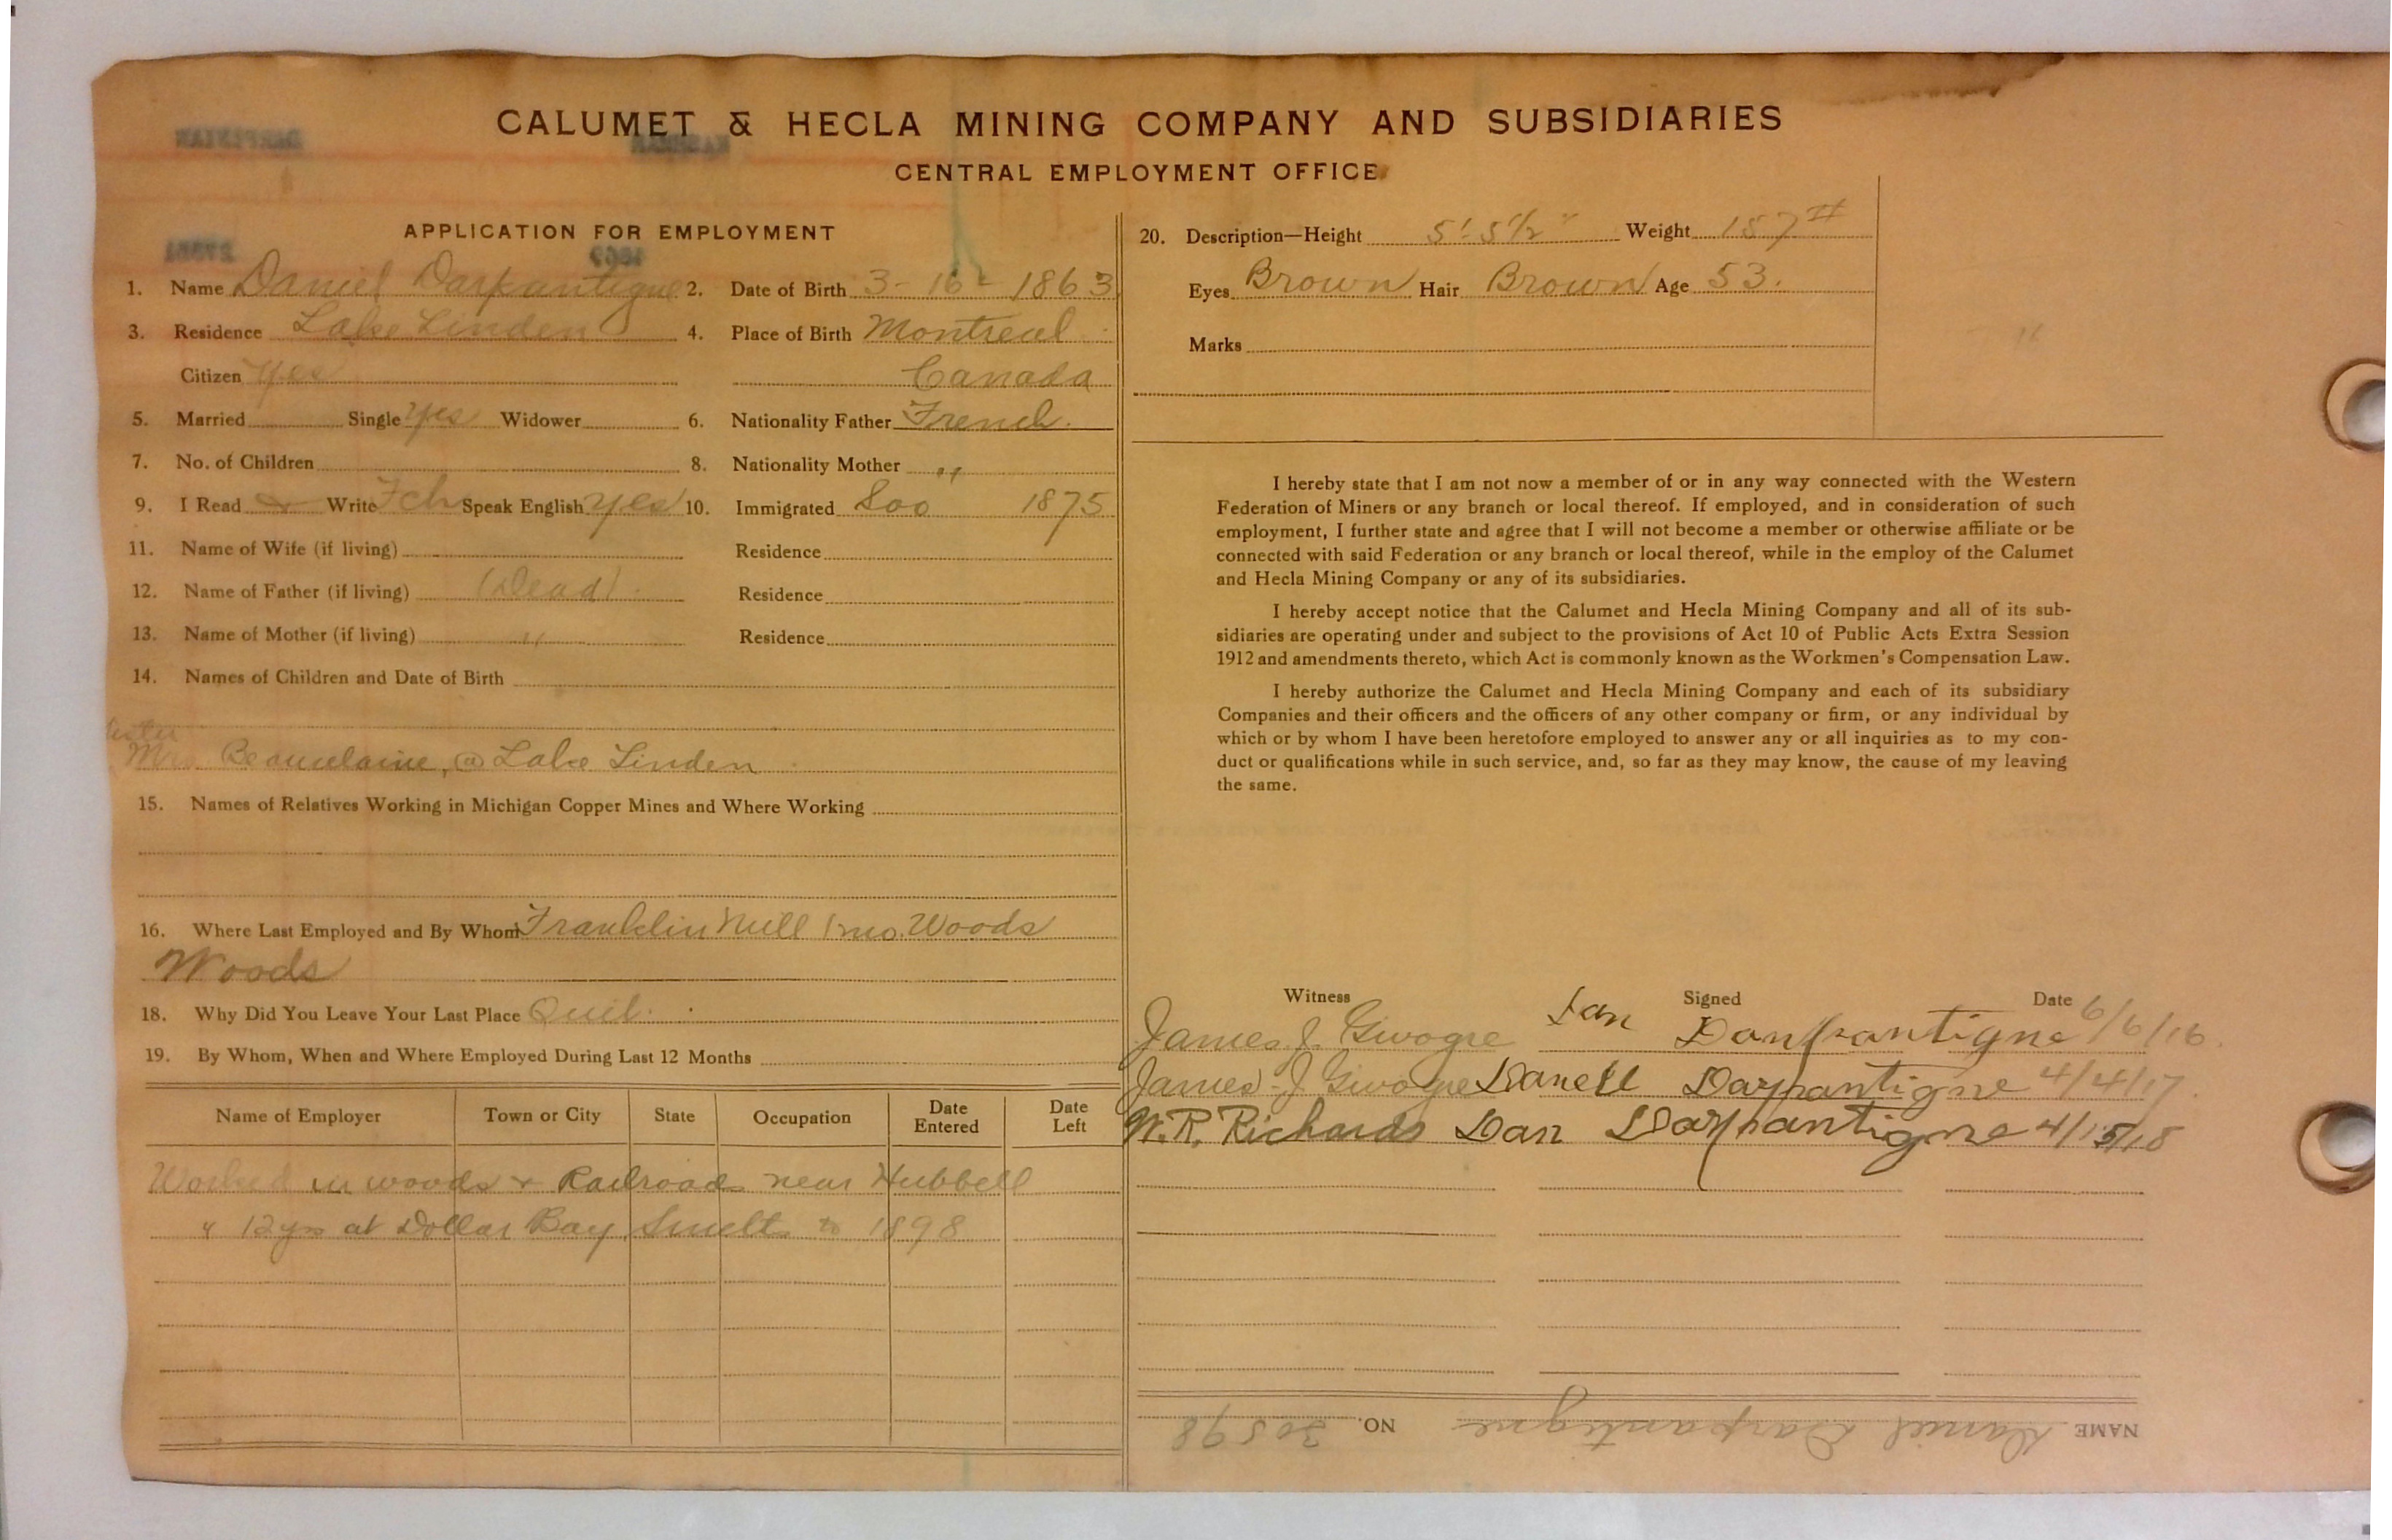 CALUMET & HECLA MINING COMPANY AND SUBSIDIARIES
CENTRAL EMPLOYMENT OFFICE
APPLICATION FOR EMPLOYMENT
1. Name Daniel Darpantigne 2. Date of Birth 3-16-1863
3. Residence Lake Linden 4. Place of Birth Montreal
Citizen Yes Canada
5. Married Single Yes Widower 6. Nationality Father French.
7. No. of Children 8. Nationality Mother "
9. I Read & Write Fch Speak English Yes 10. Immigrated Soo 1875
11. Name of Wife (if living) Residence
12. Name of Father (if living) (Dead) Residence
13. Name of Mother (if living) " Residence
14. Names of Children and Date of Birth
Mrs @ Lake Linden
15. Names of Relatives Working in Michigan Copper Mines and Where Working
16. Where Last Employed and By Whom Franklin Mill 1 mo. Woods
Woods
18. Why Did You Leave Your Last Place Quit.
19. By Whom, When and Where Employed During Last 12 Months
Name of Employer Town or City State Occupation Date Entered Date Left
Worked in woods & Railroad near Hubbell
& 12 yrs at Dollar Bay Smelt. to 1898
20. Description—Height 5'-5 1/2" Weight 157#
Eyes Brown Hair Brown Age 53.
Marks
I hereby state that I am not now a member of or in any way connected with the Western
Federation of Miners or any branch or local thereof. If employed, and in consideration of such
employment, I further state and agree that I will not become a member or otherwise affiliate or be
connected with said Federation or any branch or local thereof, while in the employ of the Calumet
and Hecla Mining Company or any of its subsidiaries.
I hereby accept notice that the Calumet and Hecla Mining Company and all of its sub-
sidiaries are operating under and subject to the provisions of Act 10 of Public Acts Extra Session
1912 and amendments thereto, which Act is commonly known as the Workmen's Compensation Law.
I hereby authorize the Calumet and Hecla Mining Company and each of its subsidiary
Companies and their officers and the officers of any other company or firm, or any individual by
which or by whom I have been heretofore employed to answer any or all inquiries as to my con-
duct or qualifications while in such service, and, so far as they may know, the cause of my leaving
the same.
Witness Signed Date
James J. Givogre Dan Danpantigne 6/6/16.
James J Givogre Danell Darpantigne 4/4/17.
W. R. Richards Dan Darpantigne 4/15/18
NAME Daniel Darpantigne NO. 30598